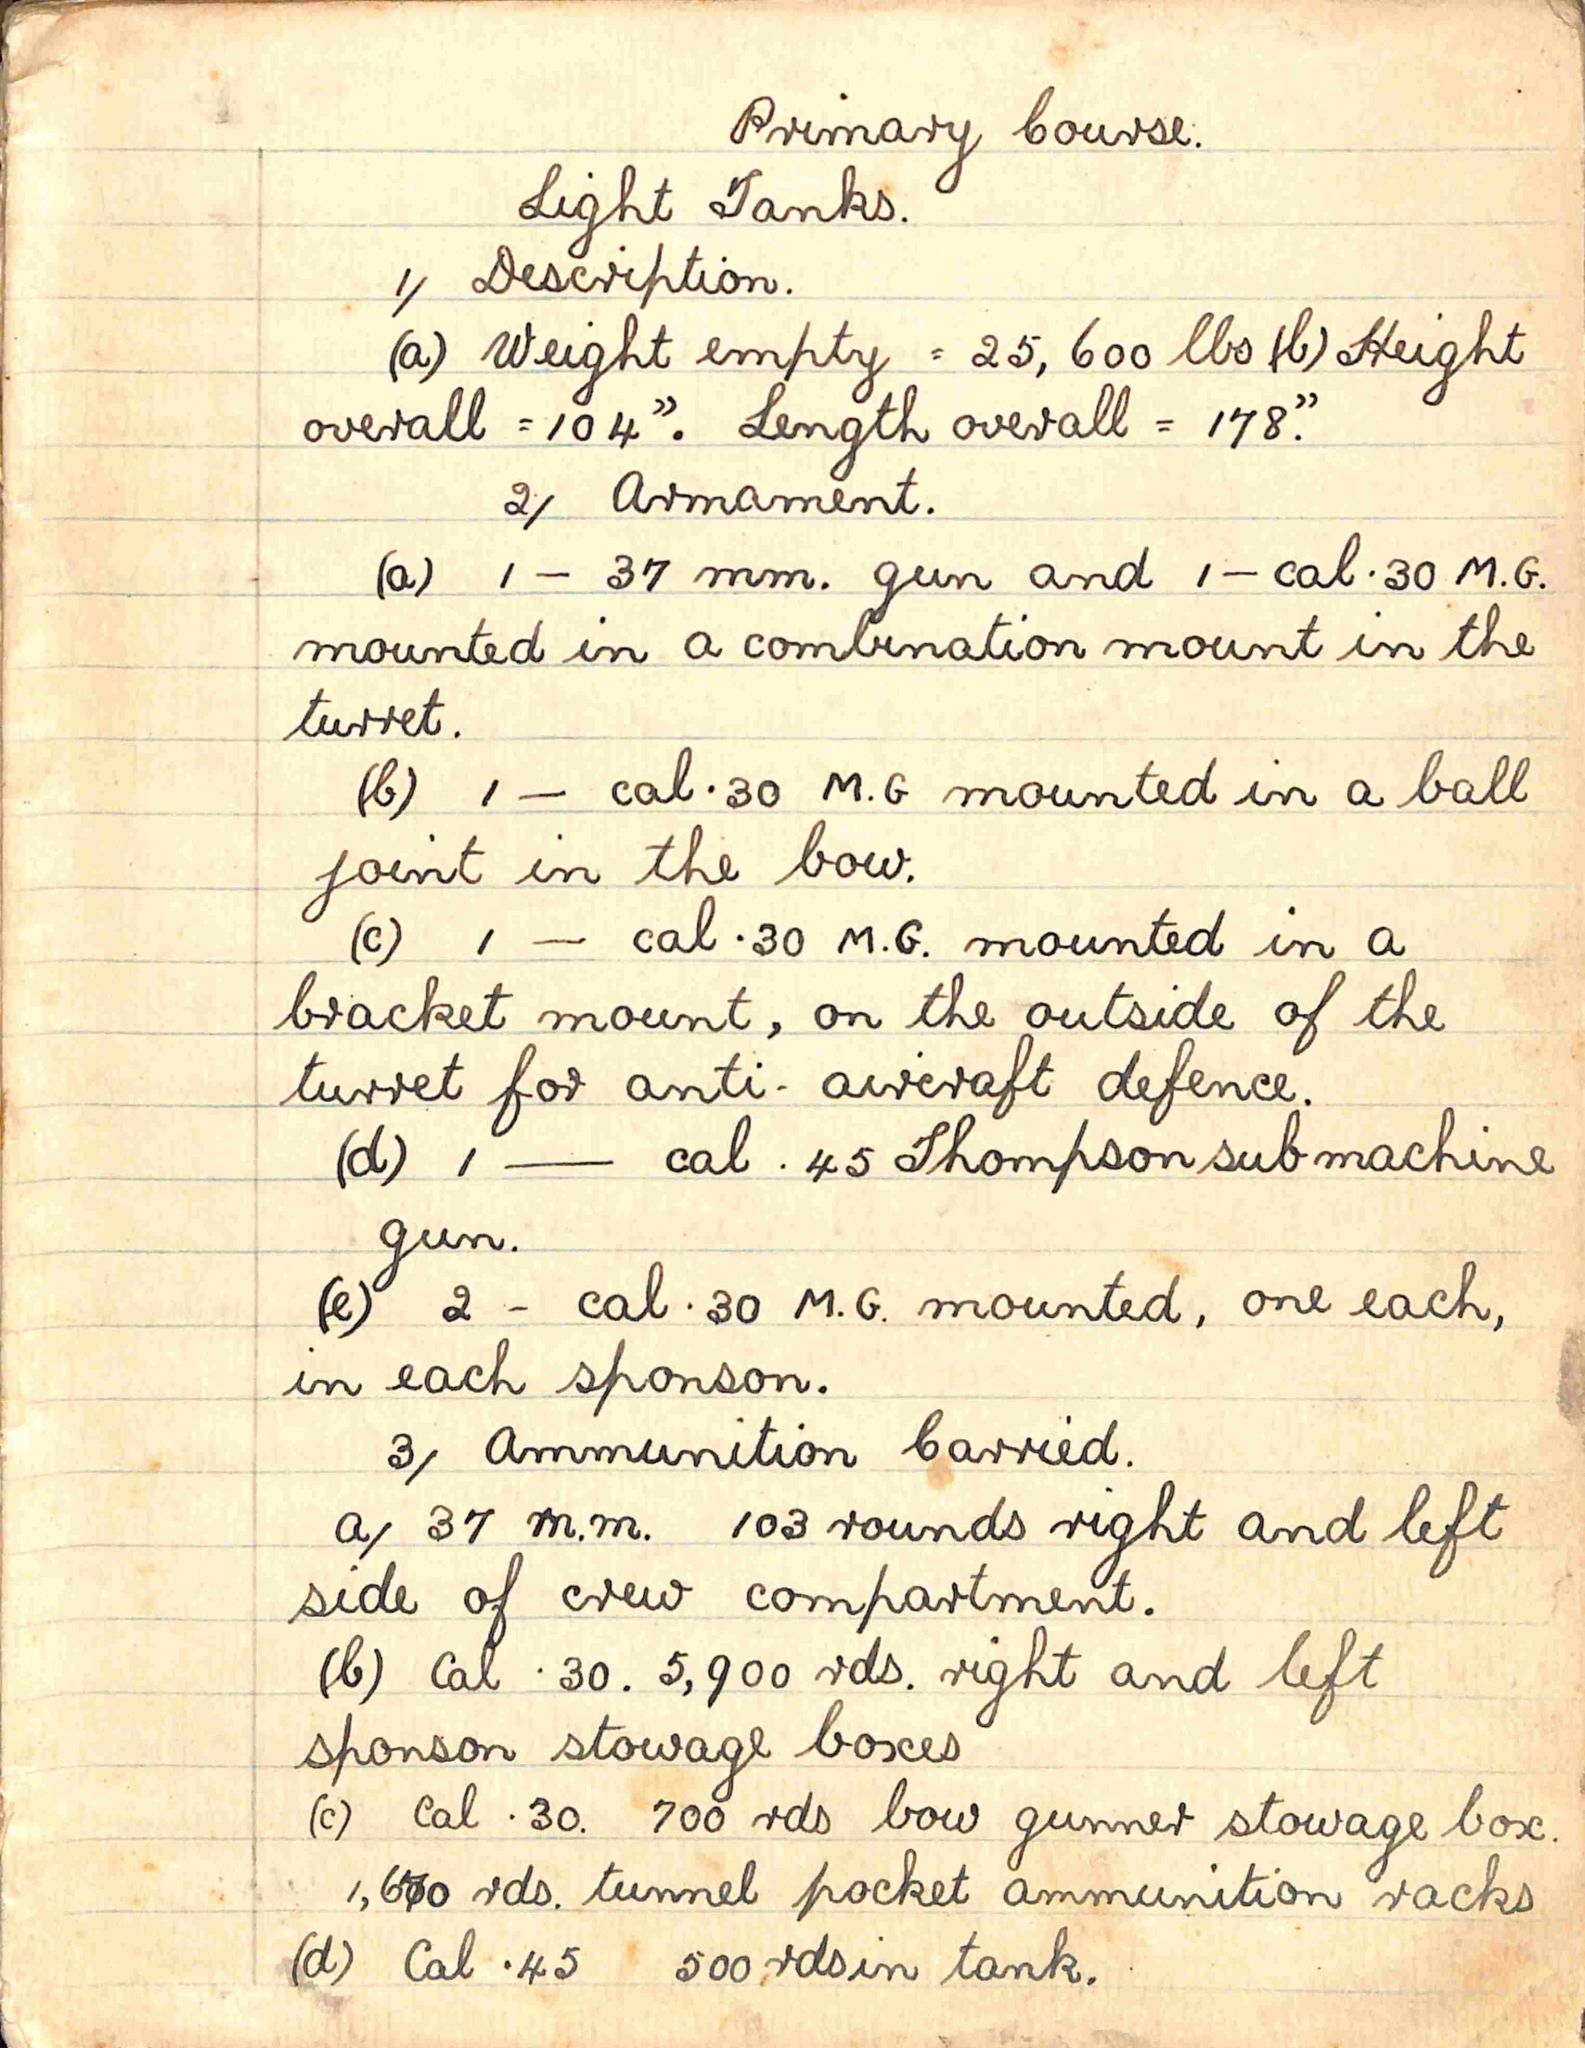 Primary Course.
Light Tanks.
1/ Description.
(a) Weight empty = 25,600 lbs (b) Height
overall = 104". Length overall = 178".
2/ Armament.
(a) 1 — 37 mm. gun and 1 — cal .30 M.G.
mounted in a combination mount in the
turret.
(b) 1 — cal .30 M.G mounted in a ball
joint in the bow.
(c) 1 — cal .30 M.G. mounted in a
bracket mount, on the outside of the
turret for anti-aircraft defence.
(d) 1 — cal .45 Thompson submachine
gun.
(e) 2 - cal .30 M.G. mounted, one each,
in each sponson.
3/ Ammunition Carried.
a/ 37 m.m. 103 rounds right and left
side of crew compartment.
(b) Cal .30. 5,900 rds. right and left
sponson stowage boxes
(c) Cal .30. 700 rds bow gunner stowage box.
rds. tunnel pocket ammunition racks
(d) Cal .45 500 rds in tank.